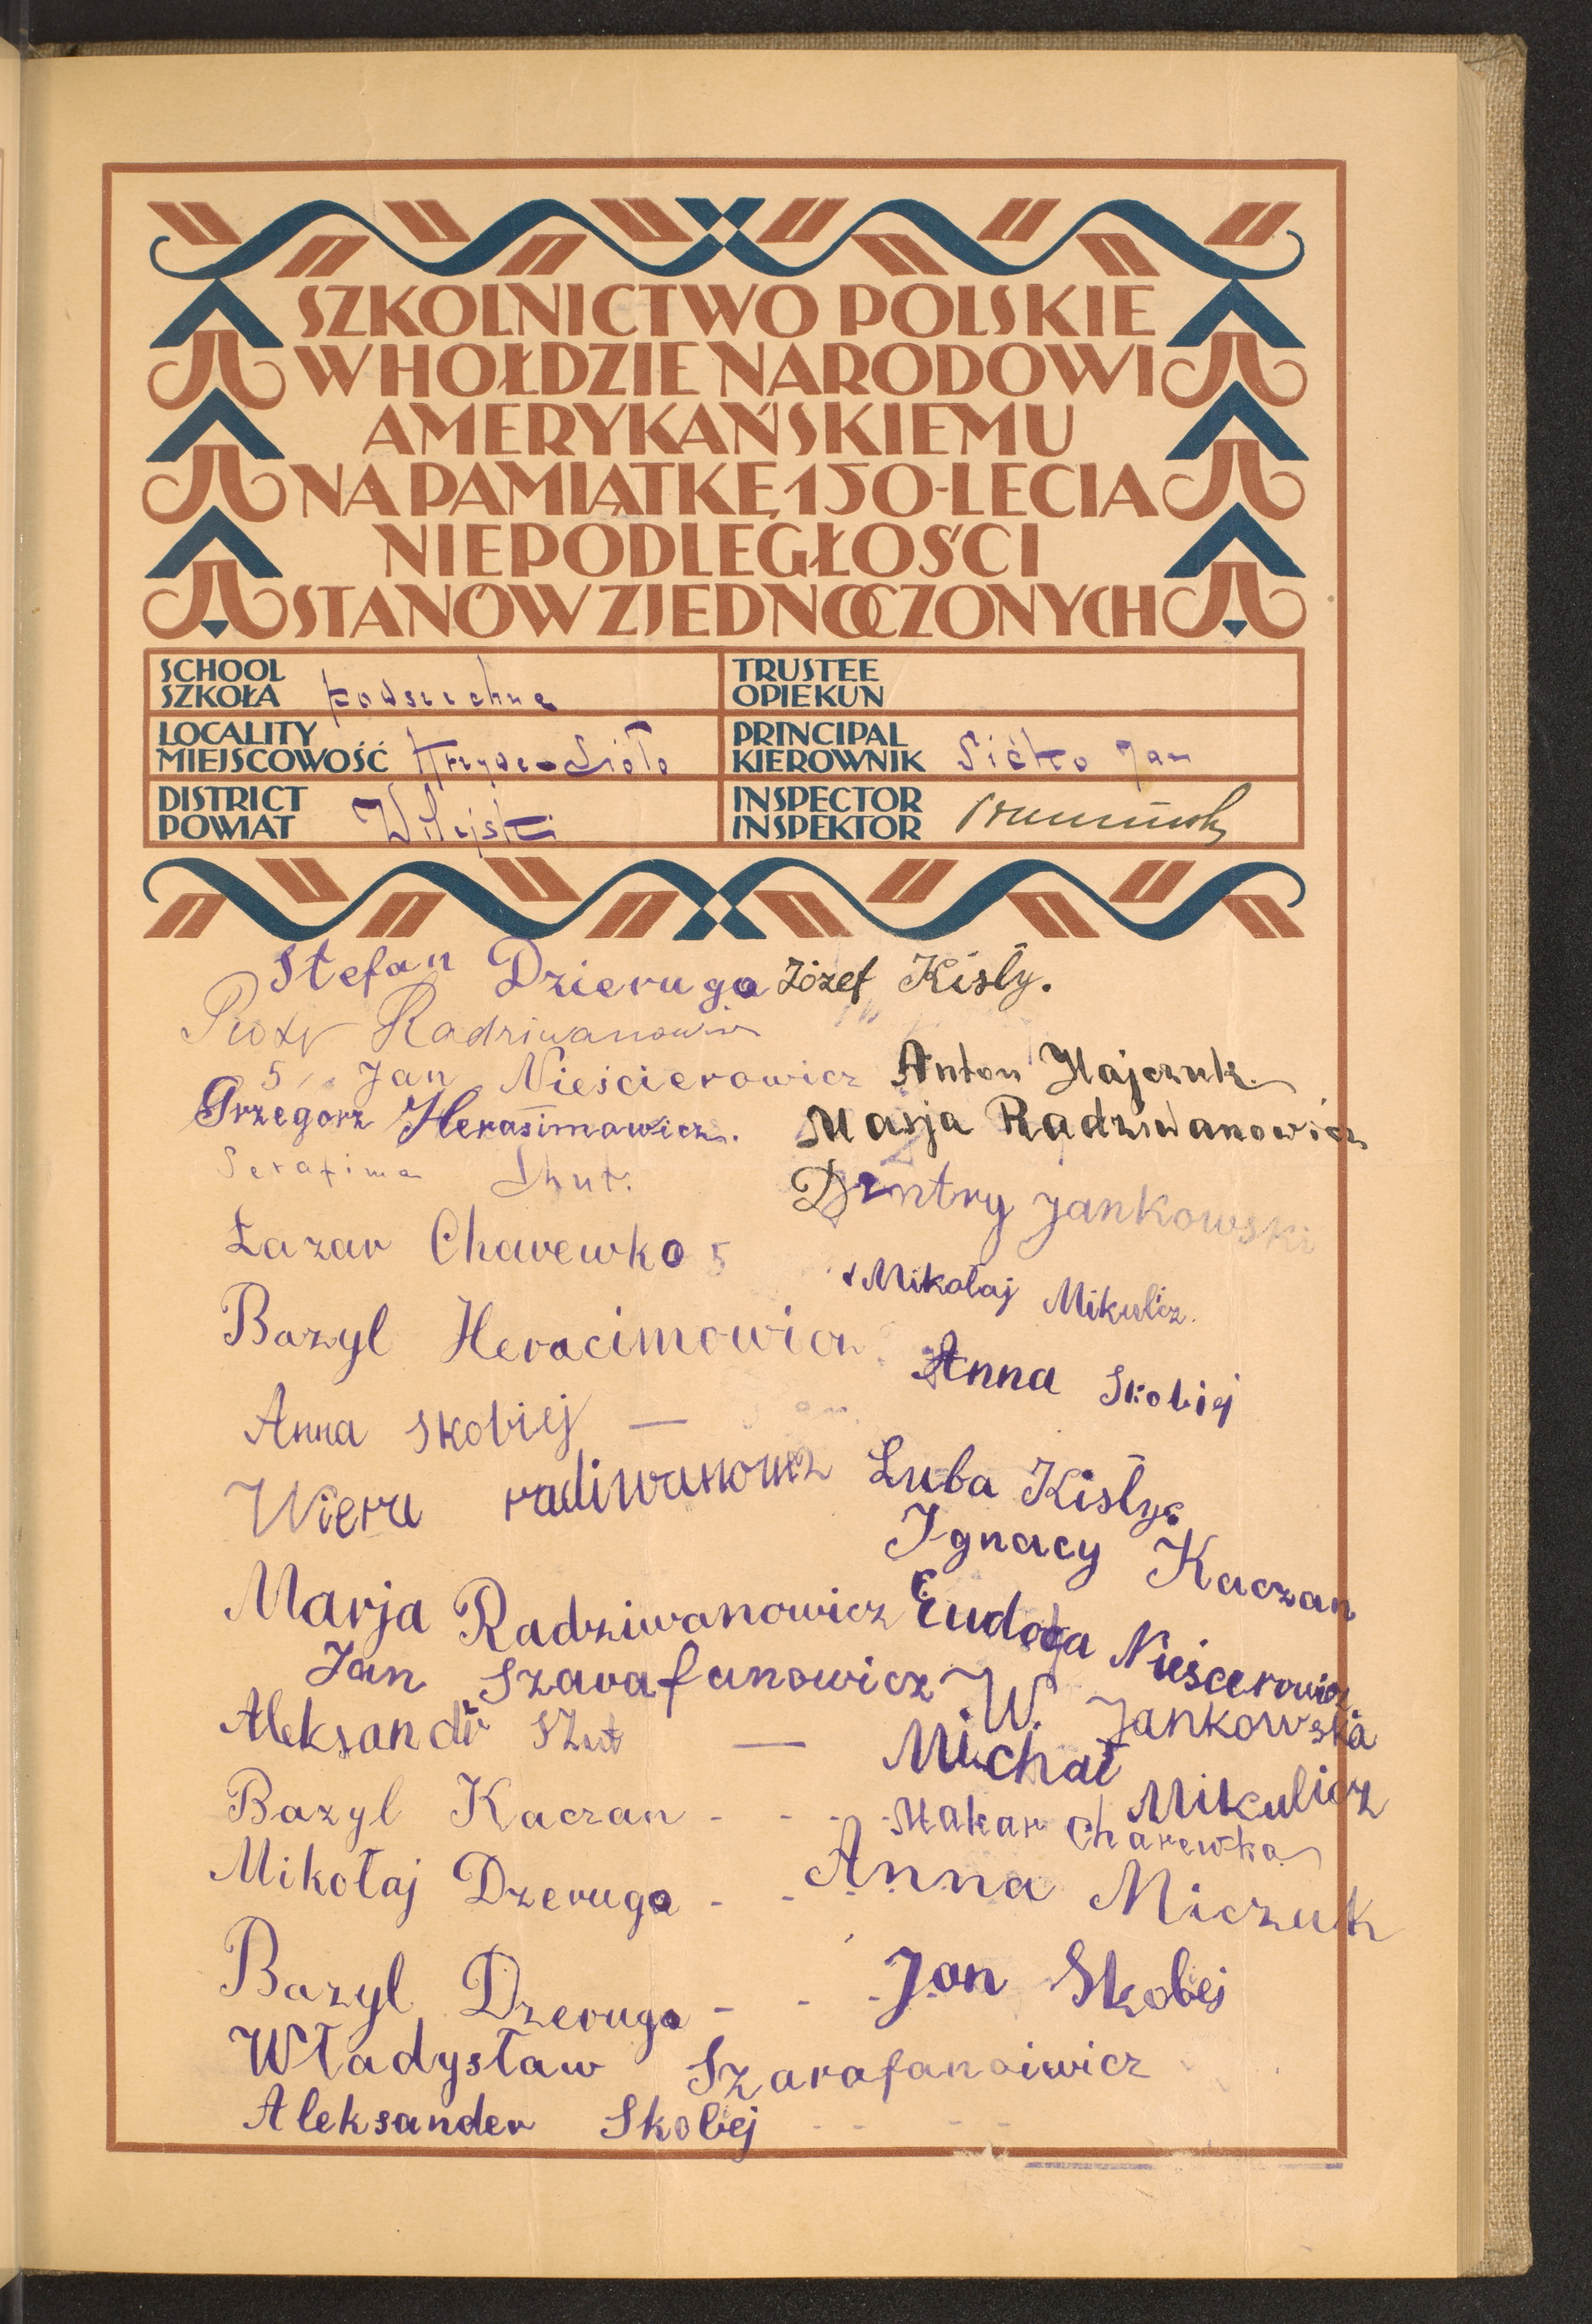 SZKOLNICTWO POLSKIE
W HOŁDZIE NARODOWI
AMERYKAŃSKIEMU
NA PAMIĄTKĘ 150-LECIA
NIEPODLEGŁOŚCI
STANÓW ZJEDNOCZONYCH
SCHOOL
SZKOŁA powszechna
TRUSTEE
OPIEKUN
LOCALITY
MIEJSCOWOŚĆ
PRINCIPAL
KIEROWNIK Jan
DISTRICT
POWIAT Wilejski
INSPECTOR
INSPEKTOR
Stefan Dzieruga Józef Kisly.
Piotr Radziwanowicz
5 Jan Nieścierowicz Anton Hajczuk
Grzegorz Herasimowicz. Marja Radziwanowicz
Serafima Shut.
Dmitry Jankowski
Łazar Charewko 5
Mikołaj Mikulicz.
Bazyl Heracimowicz
Anna Skobiej
Anna Skobiej —
Wiera radiwanowicz Luba Kisly
Ignacy Kaczan
Marja Radziwanowicz Eudoća Nieścerowicz
Jan Szarafanowicz W. Jankowska
Aleksandr Szut — Michał Mikulicz
Bazyl Kaczan - - - Makar Charewka
Mikołaj Dzeruga - - Anna Miczuk
Bazyl Dzeruga - - - Jan Skobej
Władysław Szarafanoiwicz
Aleksander Skobej